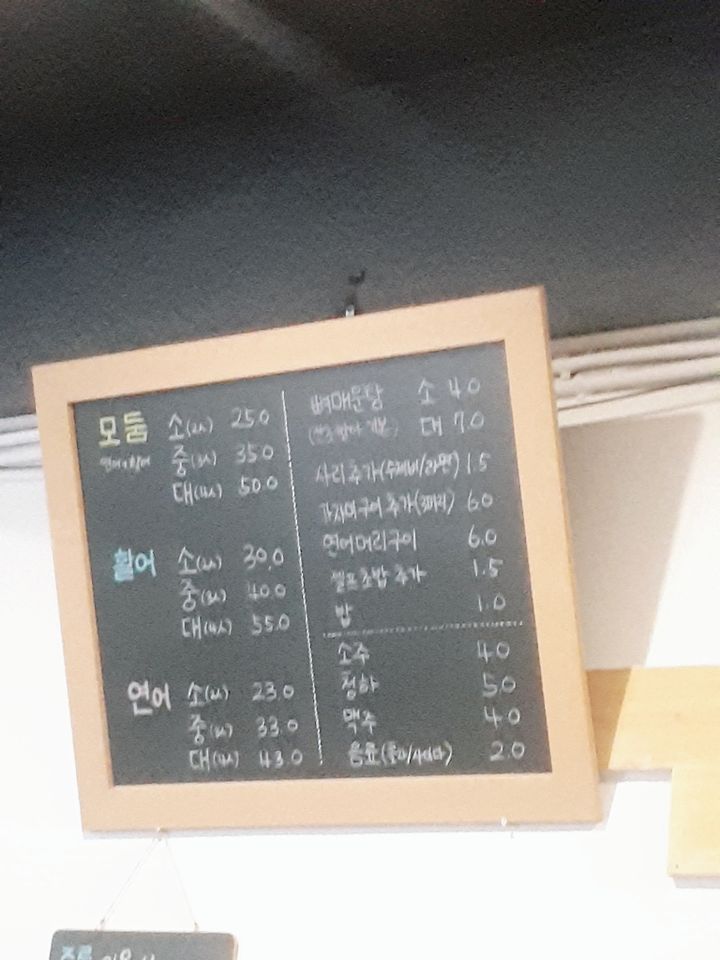 모둠 소(2人) 25.0
연어+활어 중(3人) 35.0
대(4人) 50.0
활어 소(2人) 30.0
중(3人) 40.0
대(4人) 55.0
연어 소(2人) 23.0
중(3人) 33.0
대(4人) 43.0
뼈매운탕 소 4.0
대 7.0
사리추가(수제비/라면) 1.5
가자미구이 추가(3마리) 6.0
연어머리구이 6.0
셀프초밥 추가 1.5
밥 1.0
소주 4.0
청하 5.0
맥주 4.0
음료(콜라/사이다) 2.0